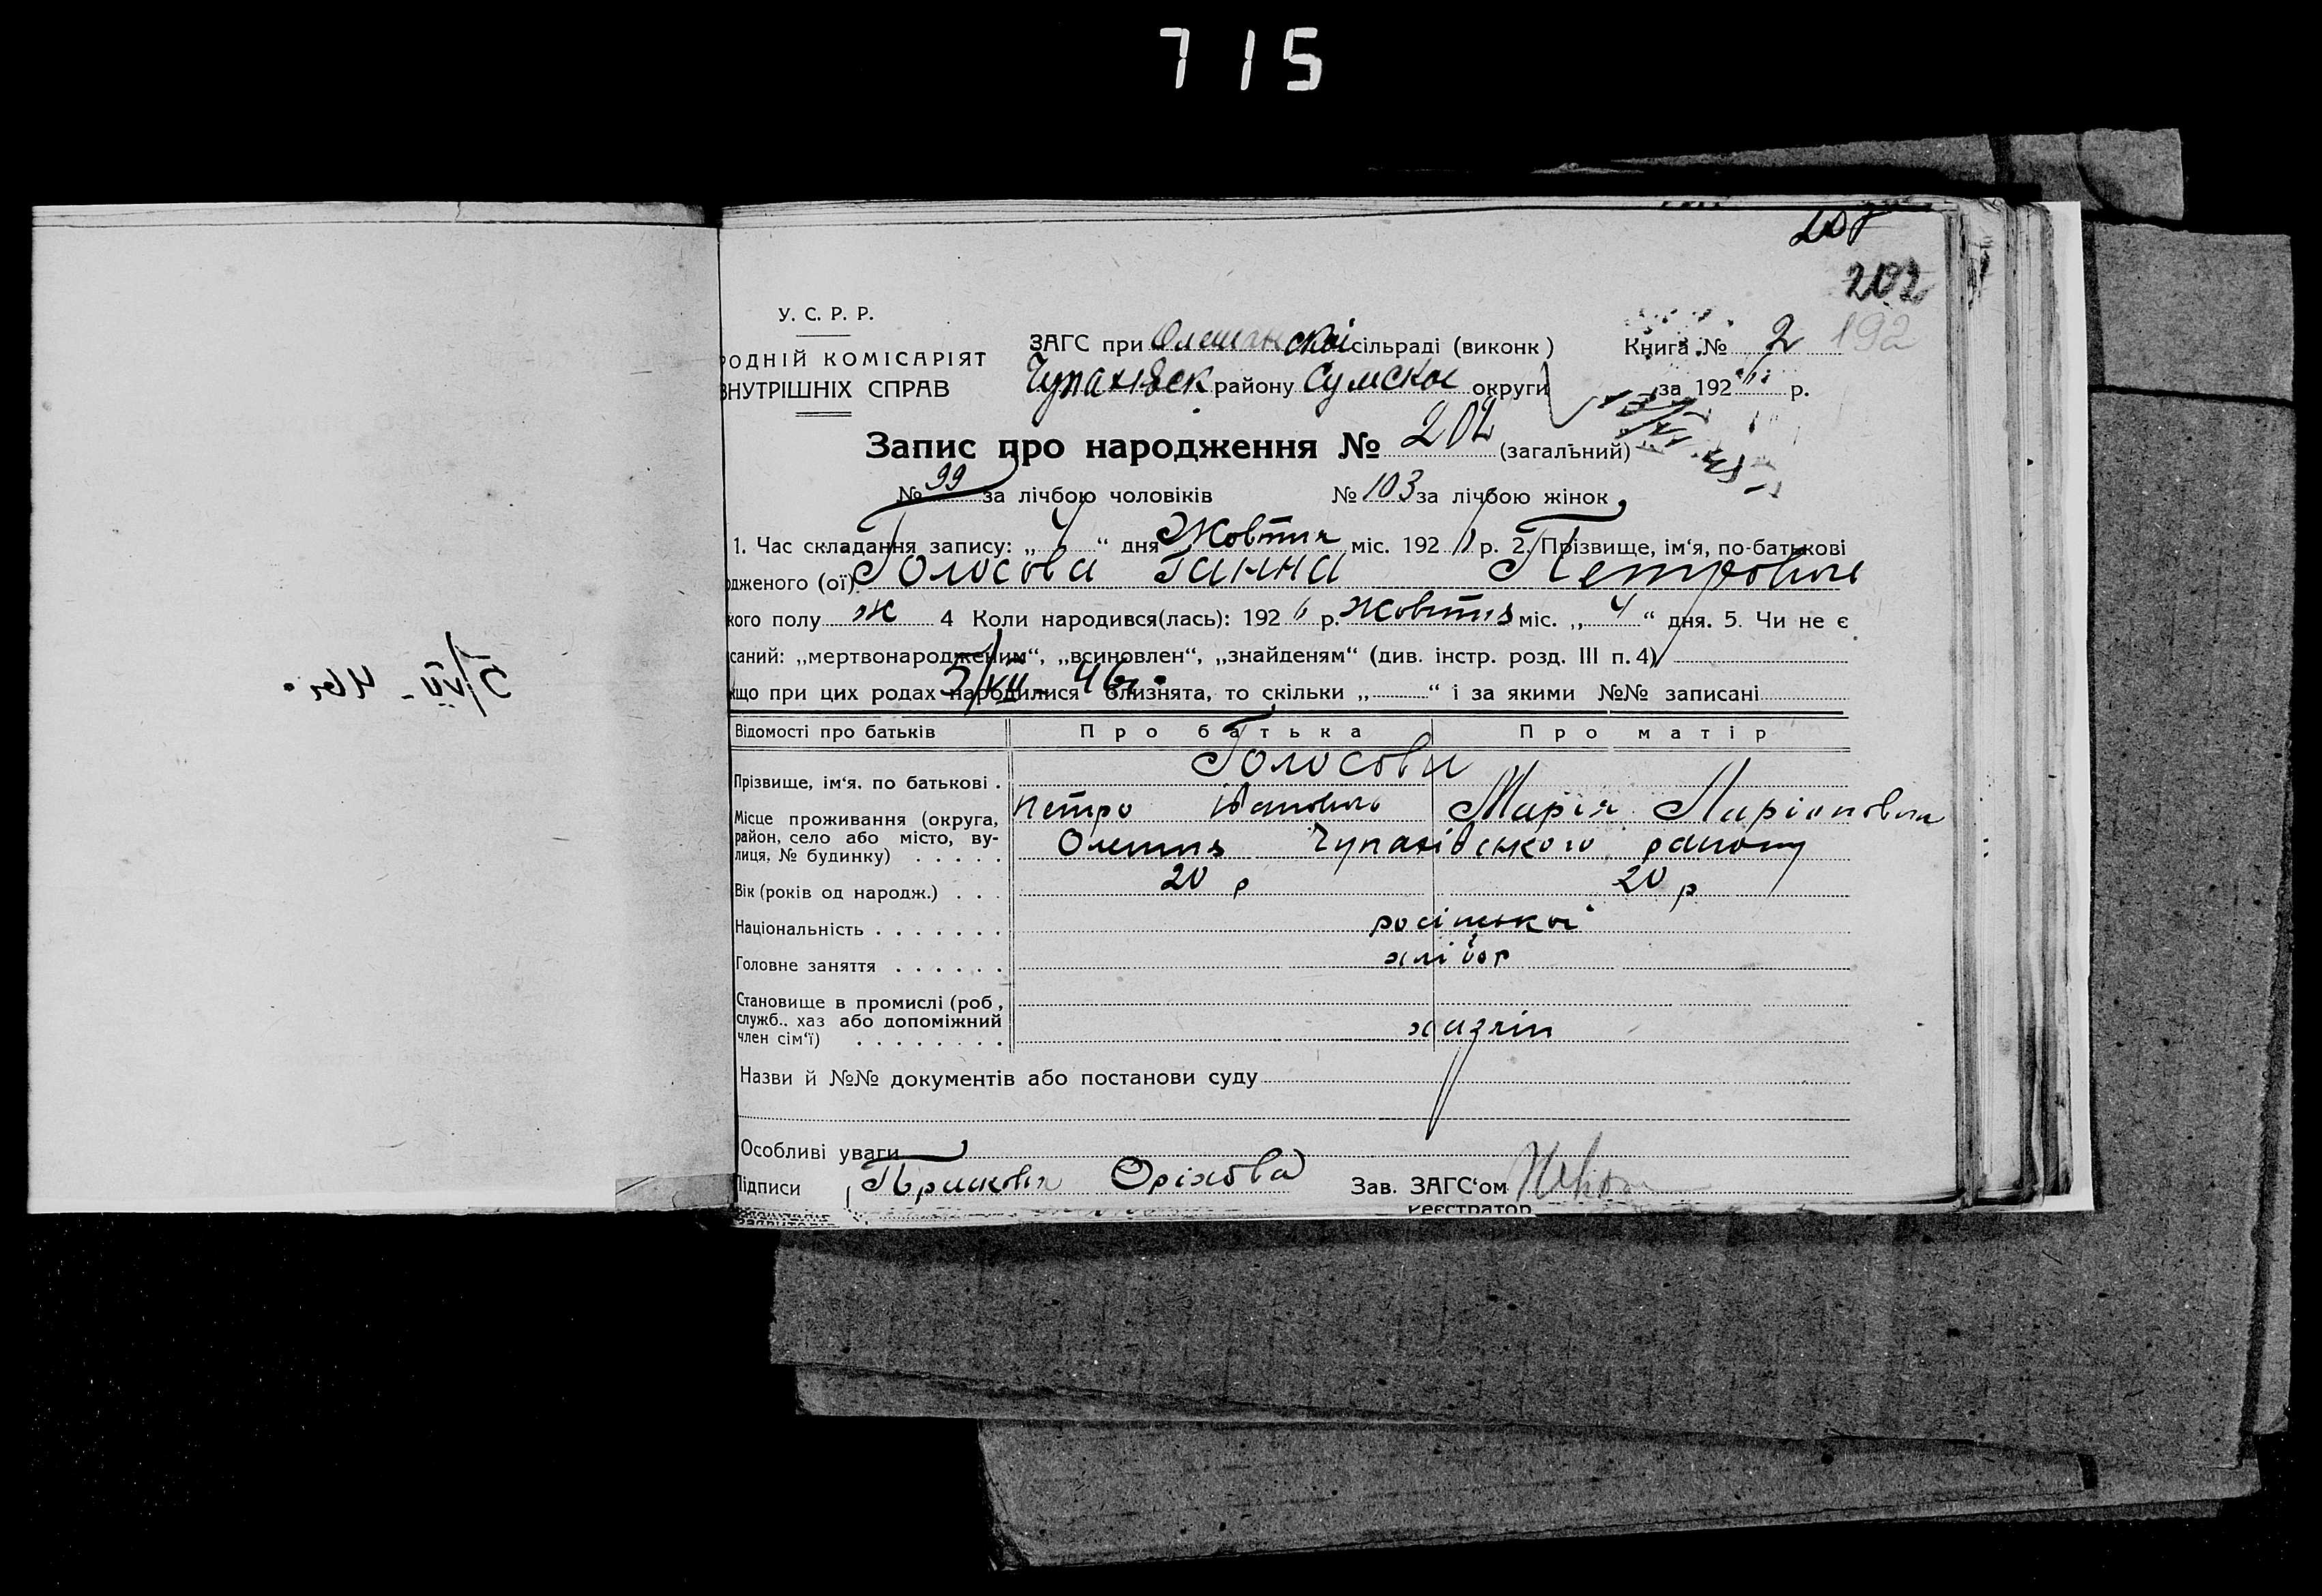 715
202
192
У. С. Р. Р.
РОДНІЙ КОМІСАРІЯТ
ВНУТРІШНІХ СПРАВ
ЗАГС при Олешанской сільраді (виконк)
Книга № 2
Чупахівск району Сумской округи
за 192 р.
Запис про народження № 202 (загальний)
№ 99 за лічбою чоловіків № 103 за лічбою жінок
1. Час складання запису: „ “ дня Жовтня міс. 192 р. 2. Прізвище, ім'я, по-батькові
дженого (ої) Голосова Ганна Петровна
кого полу ж 4 Коли народився(лась): 192 р. Жовтня міс. „ 4 “ дня. 5. Чи не є
саний: „мертвонародженим“, „всиновлен“, „знайденям“ (див. інстр. розд. III п. 4)
5/VII - 46г.
кщо при цих родах народилися близнята, то скільки „ “ і за якими №№ записані
Відомості про батьків
Про батька
Про матір
Голосови
Прізвище, ім'я, по батькові .
Петро Іванович
Марія Ларіоновна
Місце проживання (округа, район, село або місто, вулиця, № будинку) . . . . .
Олешня Чупахівського району
Вік (років од народж.) . . .
20 р
20 р
Національність . . . . . . .
росіської
Головне заняття . . . . . .
хлібор
Становище в промислі (роб., служб., хаз або допоміжний член сім'ї) . . . . . . . .
хазяїн
Назви й №№ документів або постанови суду
Особливі уваги
Підписи
Оріхова
Зав. ЗАГС'ом
Реєстратор